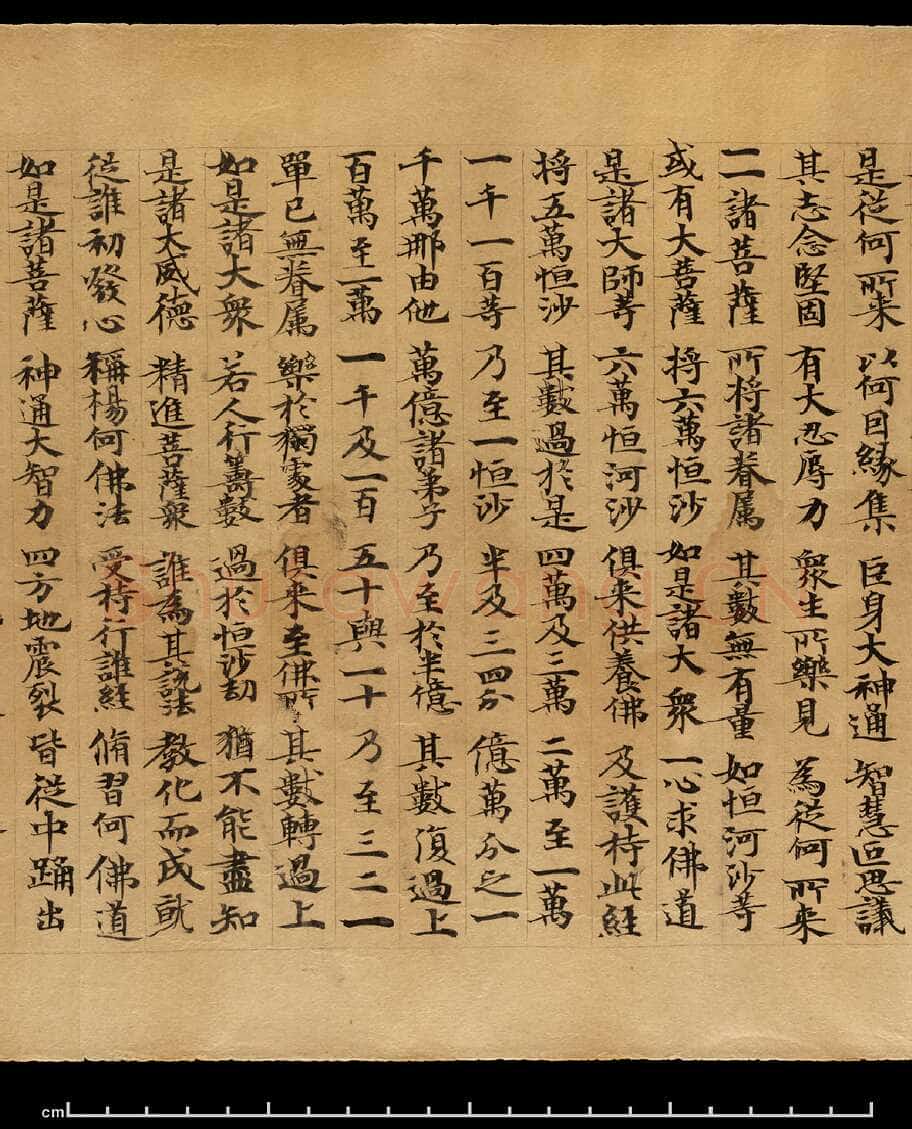 是從何所来 以何因緣集 巨身大神通 智慧叵思議
其志念堅固 有大忍辱力 衆生所樂見 為從何所来
一一諸菩薩 所将諸眷属 其數無有量 如恒河沙等
或有大菩薩 将六萬恒沙 如是諸大衆 一心求佛道
是諸大師等 六萬恒河沙 俱来供養佛 及護持此經
将五萬恒沙 其數過於是 四萬及三萬 二萬至一萬
一千一百等 乃至一恒沙 半及三四分 億萬分之一
千萬那由他 萬億諸弟子 乃至於半億 其數復過上
百萬至一萬 一千及一百 五十與一十 乃至三二一
單已無眷属 樂於獨處者 俱来至佛所 其數轉過上
如是諸大衆 若人行籌數 過於恒沙劫 猶不能盡知
是諸大威德 精進菩薩衆 誰為其說法 教化而成就
從誰初發心 稱楊何佛法 受持行誰經 脩習何佛道
如是諸菩薩 神通大智力 四方地震裂 皆從中踊出
Shufawang.CN
cm